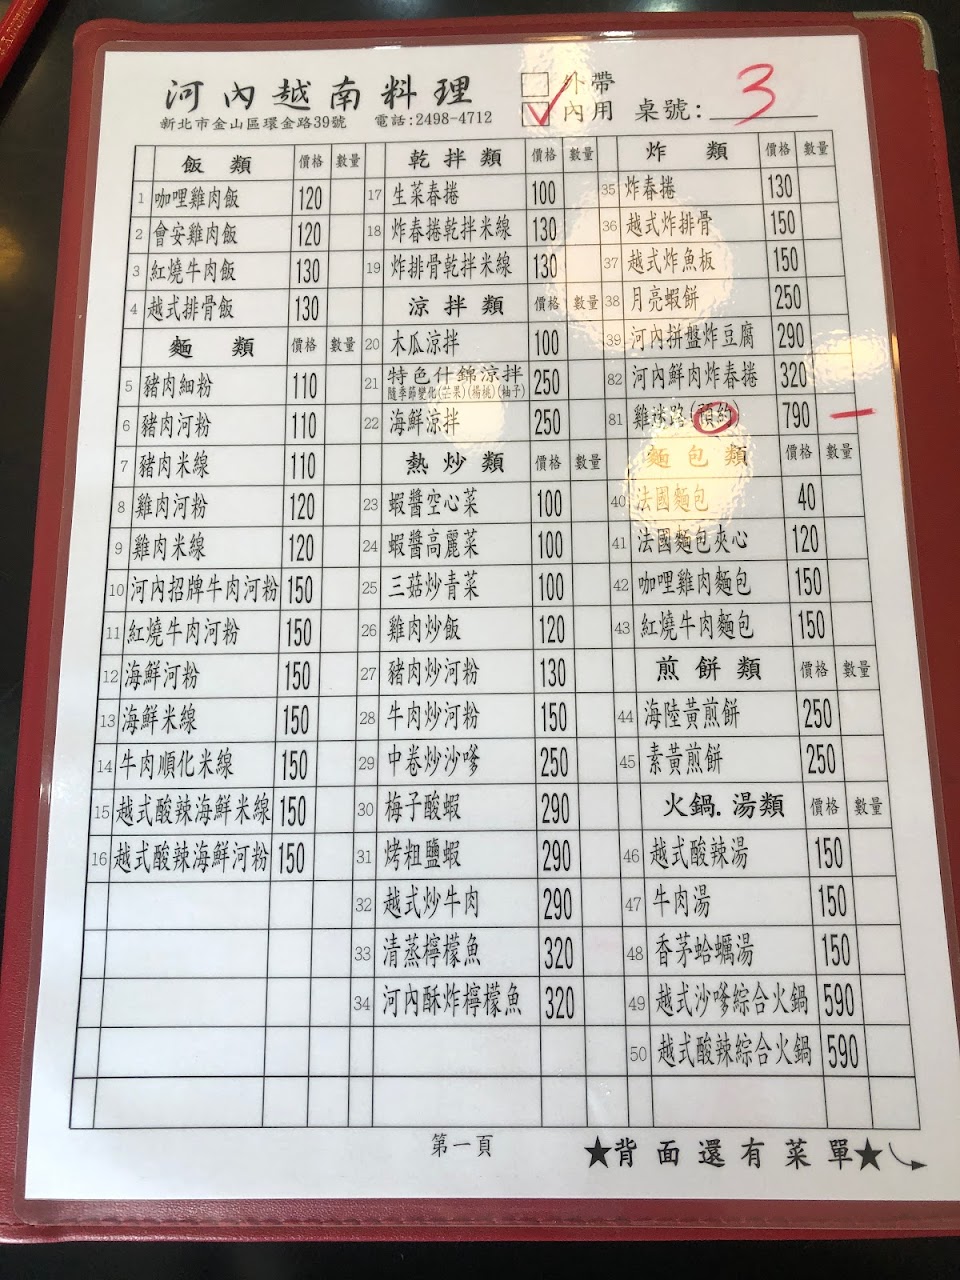 河內越南料理
新北市金山區環金路39號 電話:2498-4712
外帶
內用 桌號: 3
飯類 價格 數量
1 咖哩雞肉飯 120
2 會安雞肉飯 120
3 紅燒牛肉飯 130
4 越式排骨飯 130
麵類 價格 數量
5 豬肉細粉 110
6 豬肉河粉 110
7 豬肉米線 110
8 雞肉河粉 120
9 雞肉米線 120
10 河內招牌牛肉河粉 150
11 紅燒牛肉河粉 150
12 海鮮河粉 150
13 海鮮米線 150
14 牛肉順化米線 150
15 越式酸辣海鮮米線 150
16 越式酸辣海鮮河粉 150
乾拌類 價格 數量
17 生菜春捲 100
18 炸春捲乾拌米線 130
19 炸排骨乾拌米線 130
涼拌類 價格 數量
20 木瓜涼拌 100
21 特色什錦涼拌 250
隨季節變化(芒果)(楊桃)(柚子)
22 海鮮涼拌 250
熱炒類 價格 數量
23 蝦醬空心菜 100
24 蝦醬高麗菜 100
25 三菇炒青菜 100
26 雞肉炒飯 120
27 豬肉炒河粉 130
28 牛肉炒河粉 150
29 中卷炒沙嗲 250
30 梅子酸蝦 290
31 烤粗鹽蝦 290
32 越式炒牛肉 290
33 清蒸檸檬魚 320
34 河內酥炸檸檬魚 320
炸類 價格 數量
35 炸春捲 130
36 越式炸排骨 150
37 越式炸魚板 150
38 月亮蝦餅 250
39 河內拼盤炸豆腐 290
82 河內鮮肉炸春捲 320
81 雞迷路(預約) 790
麵包類 價格 數量
40 法國麵包 40
41 法國麵包夾心 120
42 咖哩雞肉麵包 150
43 紅燒牛肉麵包 150
煎餅類 價格 數量
44 海陸黃煎餅 250
45 素黃煎餅 250
火鍋.湯類 價格 數量
46 越式酸辣湯 150
47 牛肉湯 150
48 香茅蛤蠣湯 150
49 越式沙嗲綜合火鍋 590
50 越式酸辣綜合火鍋 590
第一頁
★背面還有菜單★